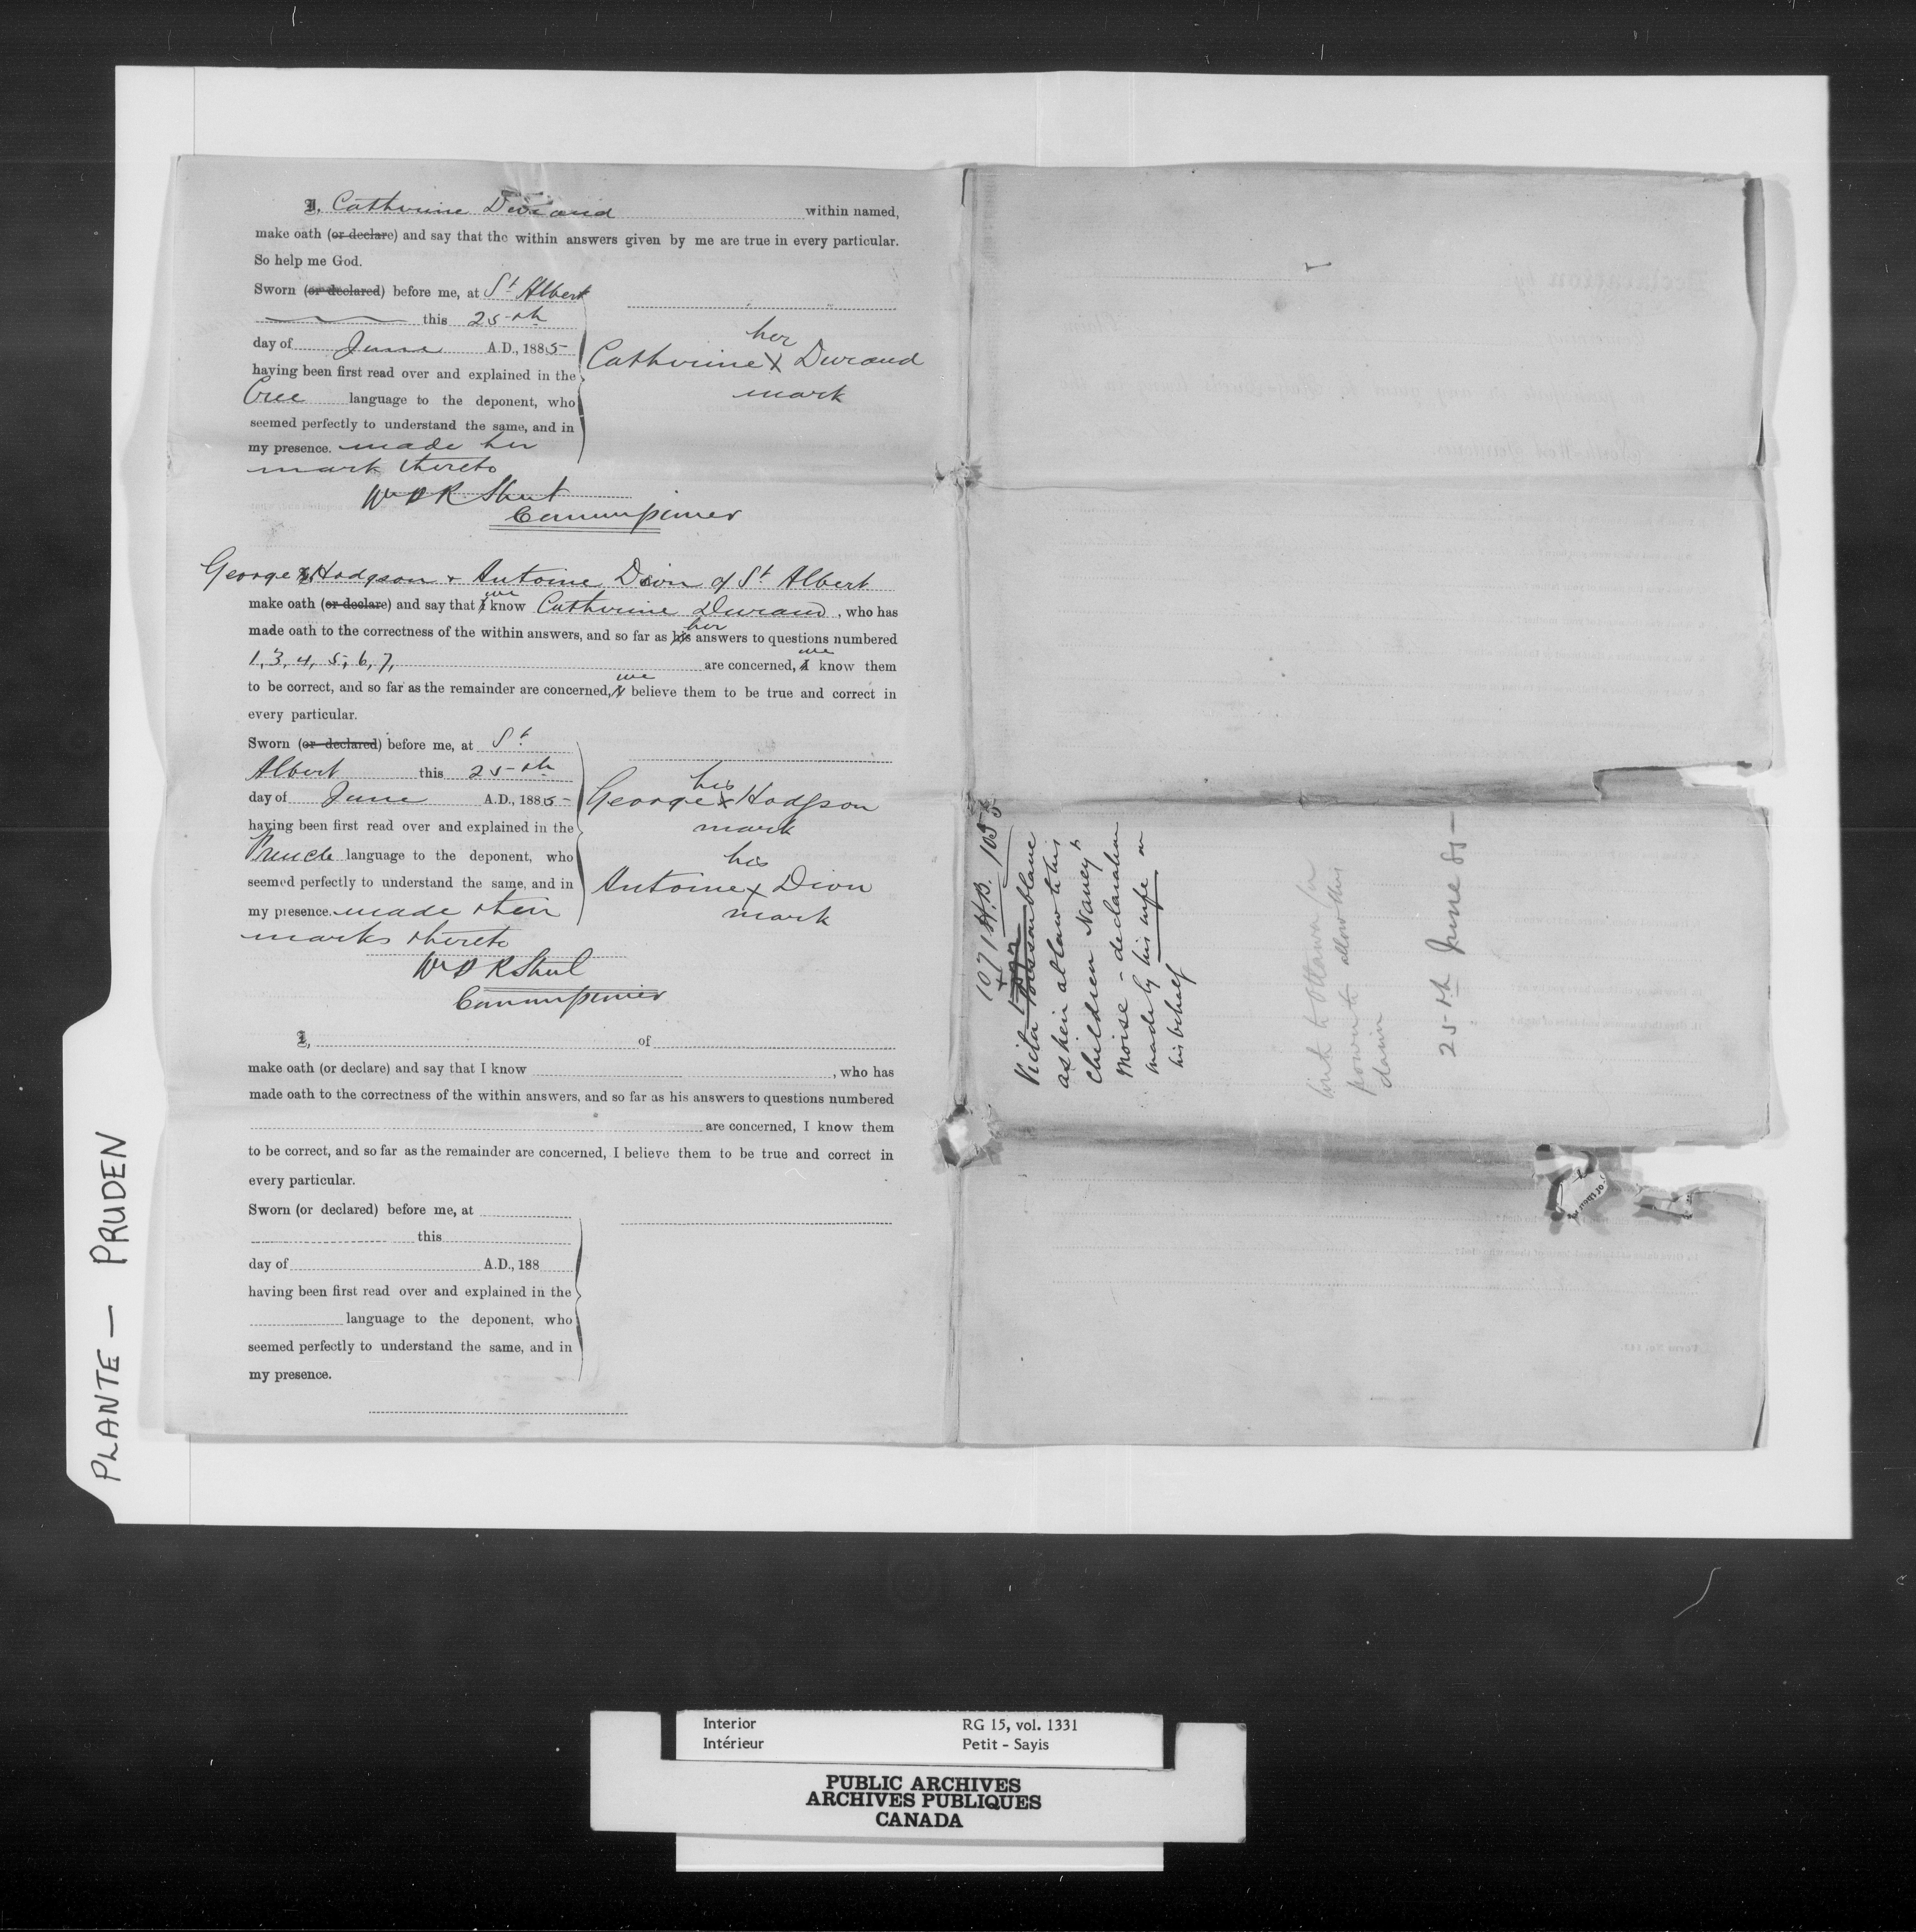 I, Catherine Durand within named,
make oath (or declare) and say that the within answers given by me are true in every particular.
So help me God.
Sworn (or declared) before me, at St Albert
this 25th
day of June A.D., 1885
having been first read over and explained in the
Cree language to the deponent, who
seemed perfectly to understand the same, and in
my presence. made her
mark thereto
her
Catherine X Durand
mark
Commissioner
George Hodgson + Antoine Dion of St Albert
make oath (or declare) and say that I we know Catherine Durand, who has
made oath to the correctness of the within answers, and so far as his her answers to questions numbered
1, 3, 4, 5, 6, 7, are concerned, I we know them
to be correct, and so far as the remainder are concerned, I we believe them to be true and correct in
every particular.
Sworn (or declared) before me, at St
Albert this 25th
day of June A.D., 1885
having been first read over and explained in the
French language to the deponent, who
seemed perfectly to understand the same, and in
my presence. made their
marks thereto
his
George X Hodgson
mark
his
Antoine X Dion
mark
Commissioner
I, of
make oath (or declare) and say that I know , who has
made oath to the correctness of the within answers, and so far as his answers to questions numbered
are concerned, I know them
to be correct, and so far as the remainder are concerned, I believe them to be true and correct in
every particular.
Sworn (or declared) before me, at
this
day of A.D., 188
having been first read over and explained in the
language to the deponent, who
seemed perfectly to understand the same, and in
my presence.
1071 H.B.
as heir at law to his
children Nancy &
Moise - declaration
made by his wife on
his behalf
to Ottawa for
power to allow this
claim
25th June 85
PLANTE — PRUDEN
Interior RG 15, vol. 1331
Intérieur Petit - Sayis
PUBLIC ARCHIVES
ARCHIVES PUBLIQUES
CANADA